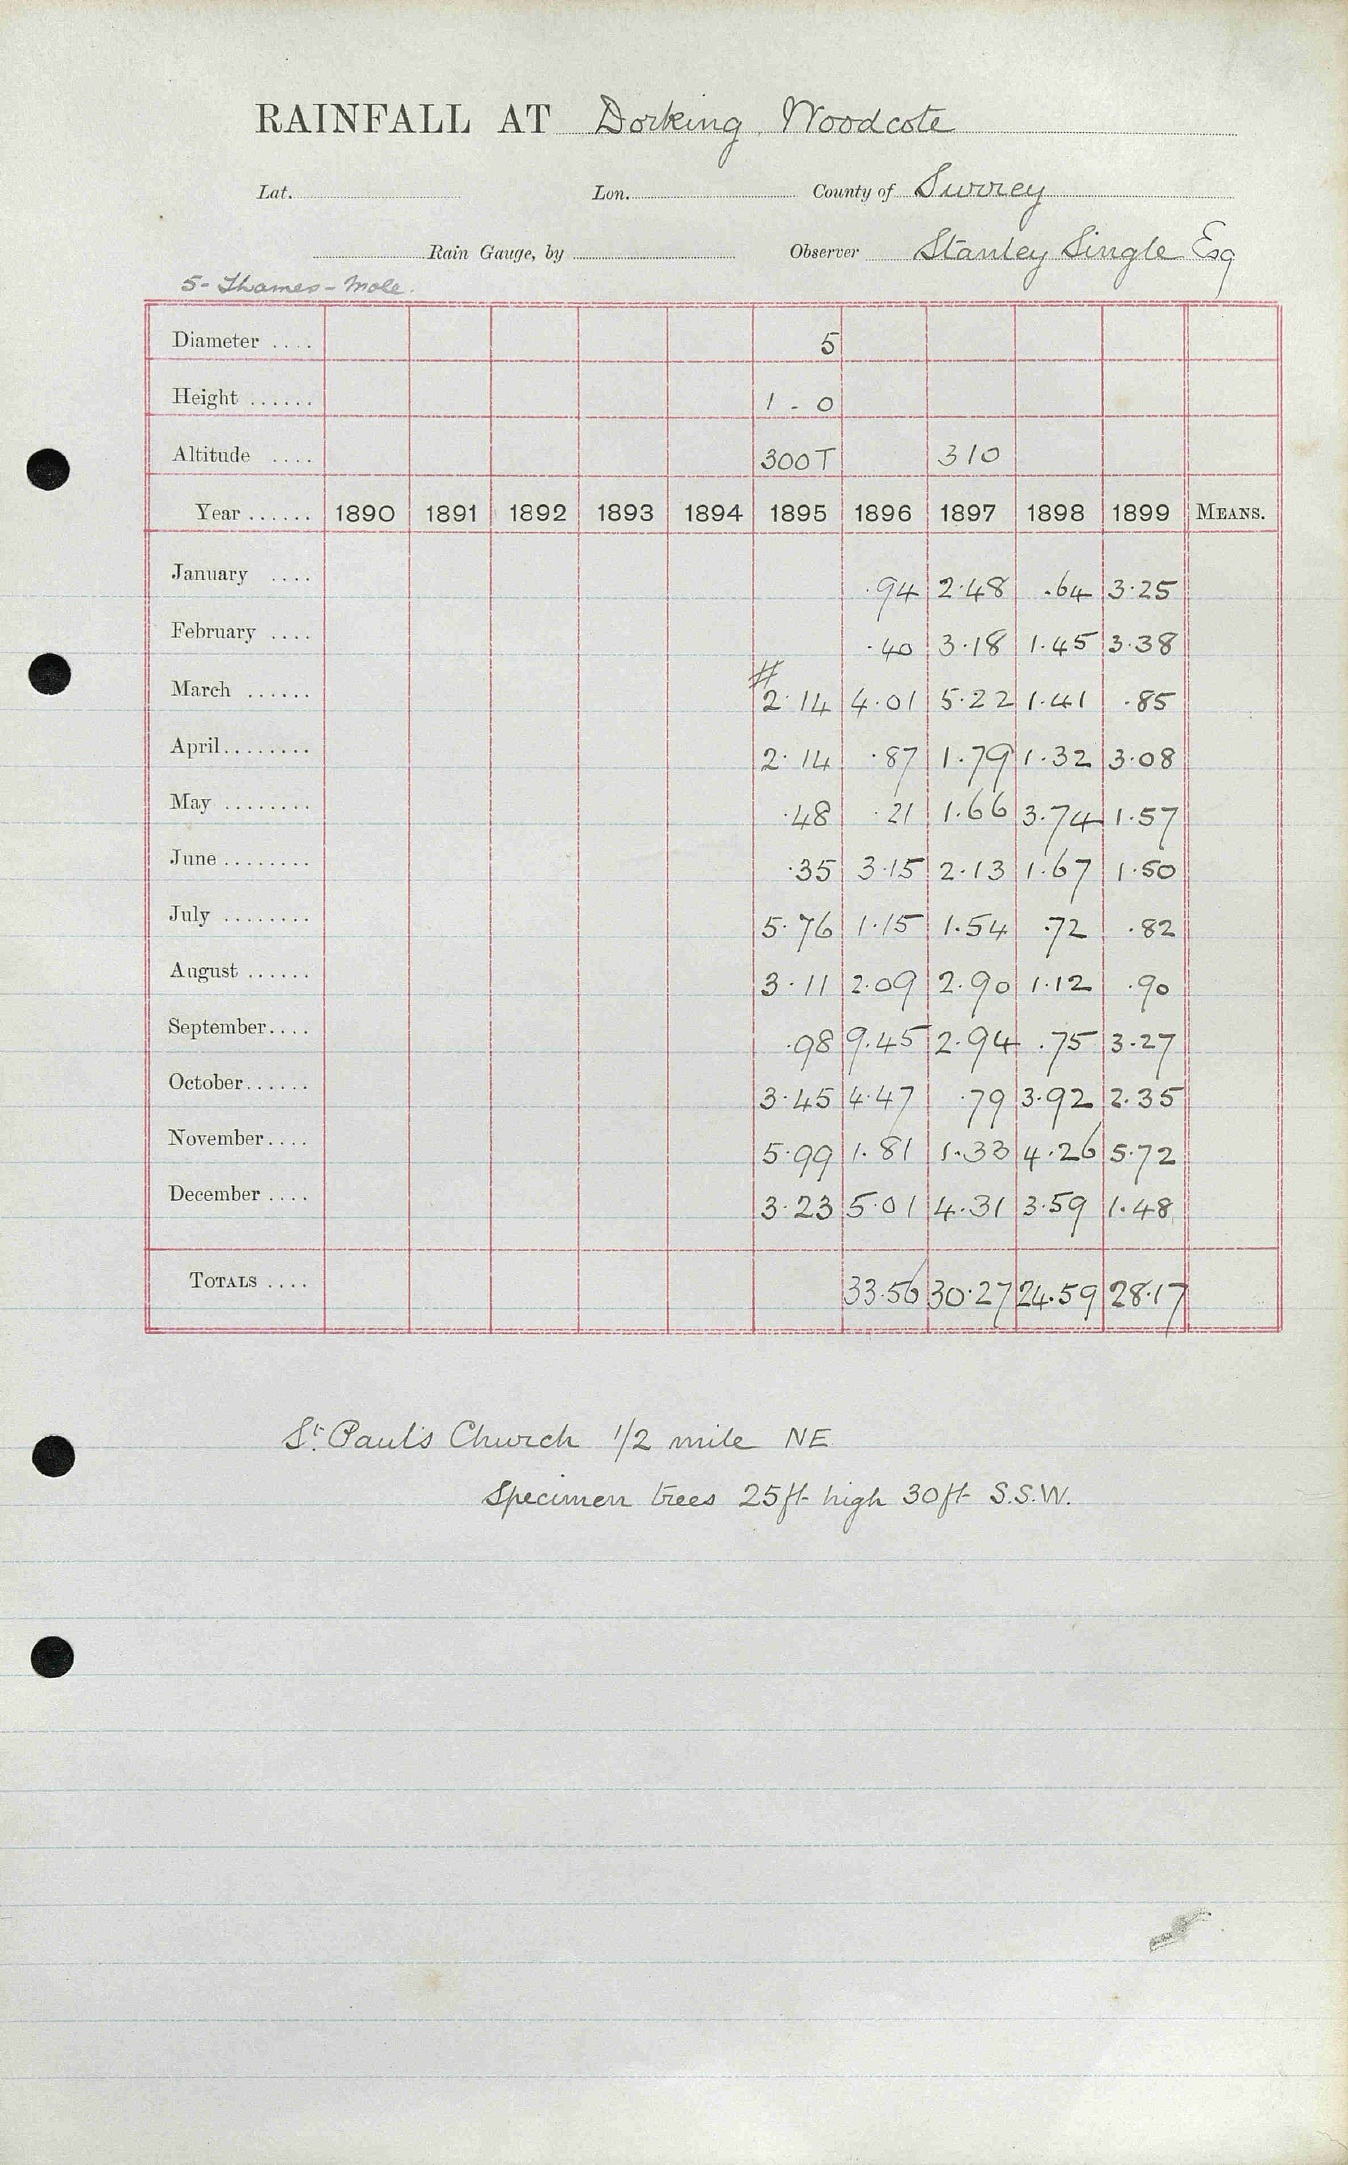 RAINFALL AT Dorking, Woodcote
Lat. Lon. County of Surrey
Rain Gauge, by Observer Stanley Single Esq
5 - Thames - Mole.
Diameter .... 5
Height ...... 1 - 0
Altitude .... 300T 310
Year ...... 1890 1891 1892 1893 1894 1895 1896 1897 1898 1899 MEANS.
January .... .94 2.48 .64 3.25
February .... .40 3.18 1.45 3.38
#
March ...... 2.14 4.01 5.22 1.41 .85
April ........ 2.14 .87 1.79 1.32 3.08
May ........ .48 .21 1.66 3.74 1.57
June ........ .35 3.15 2.13 1.67 1.50
July ........ 5.76 1.15 1.54 .72 .82
August ...... 3.11 2.09 2.90 1.12 .90
September.... .98 9.45 2.94 .75 3.27
October...... 3.45 4.47 .79 3.92 2.35
November.... 5.99 1.81 1.33 4.26 5.72
December .... 3.23 5.01 4.31 3.59 1.48
TOTALS .... 33.56 30.27 24.59 28.17
St. Paul's Church 1/2 mile NE
Specimen trees 25ft high 30ft S.S.W.